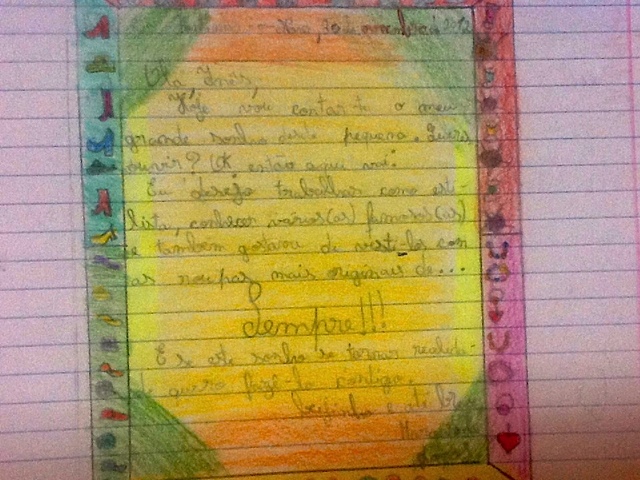 30 de novembro de 2012
Olá, Inês,
Hoje vou contar-te o meu
grande sonho desde pequena. Queres
ouvir? OK então aqui vai:
Eu desejo trabalhar como esti-
lista, conhecer vários(as) famosos(as)
e também gostava de visti-los com
as roupas mais originais de...
Sempre!!!
E se este sonho se tornar realida-
de quero fazê-lo contigo.
Beijinhos e até